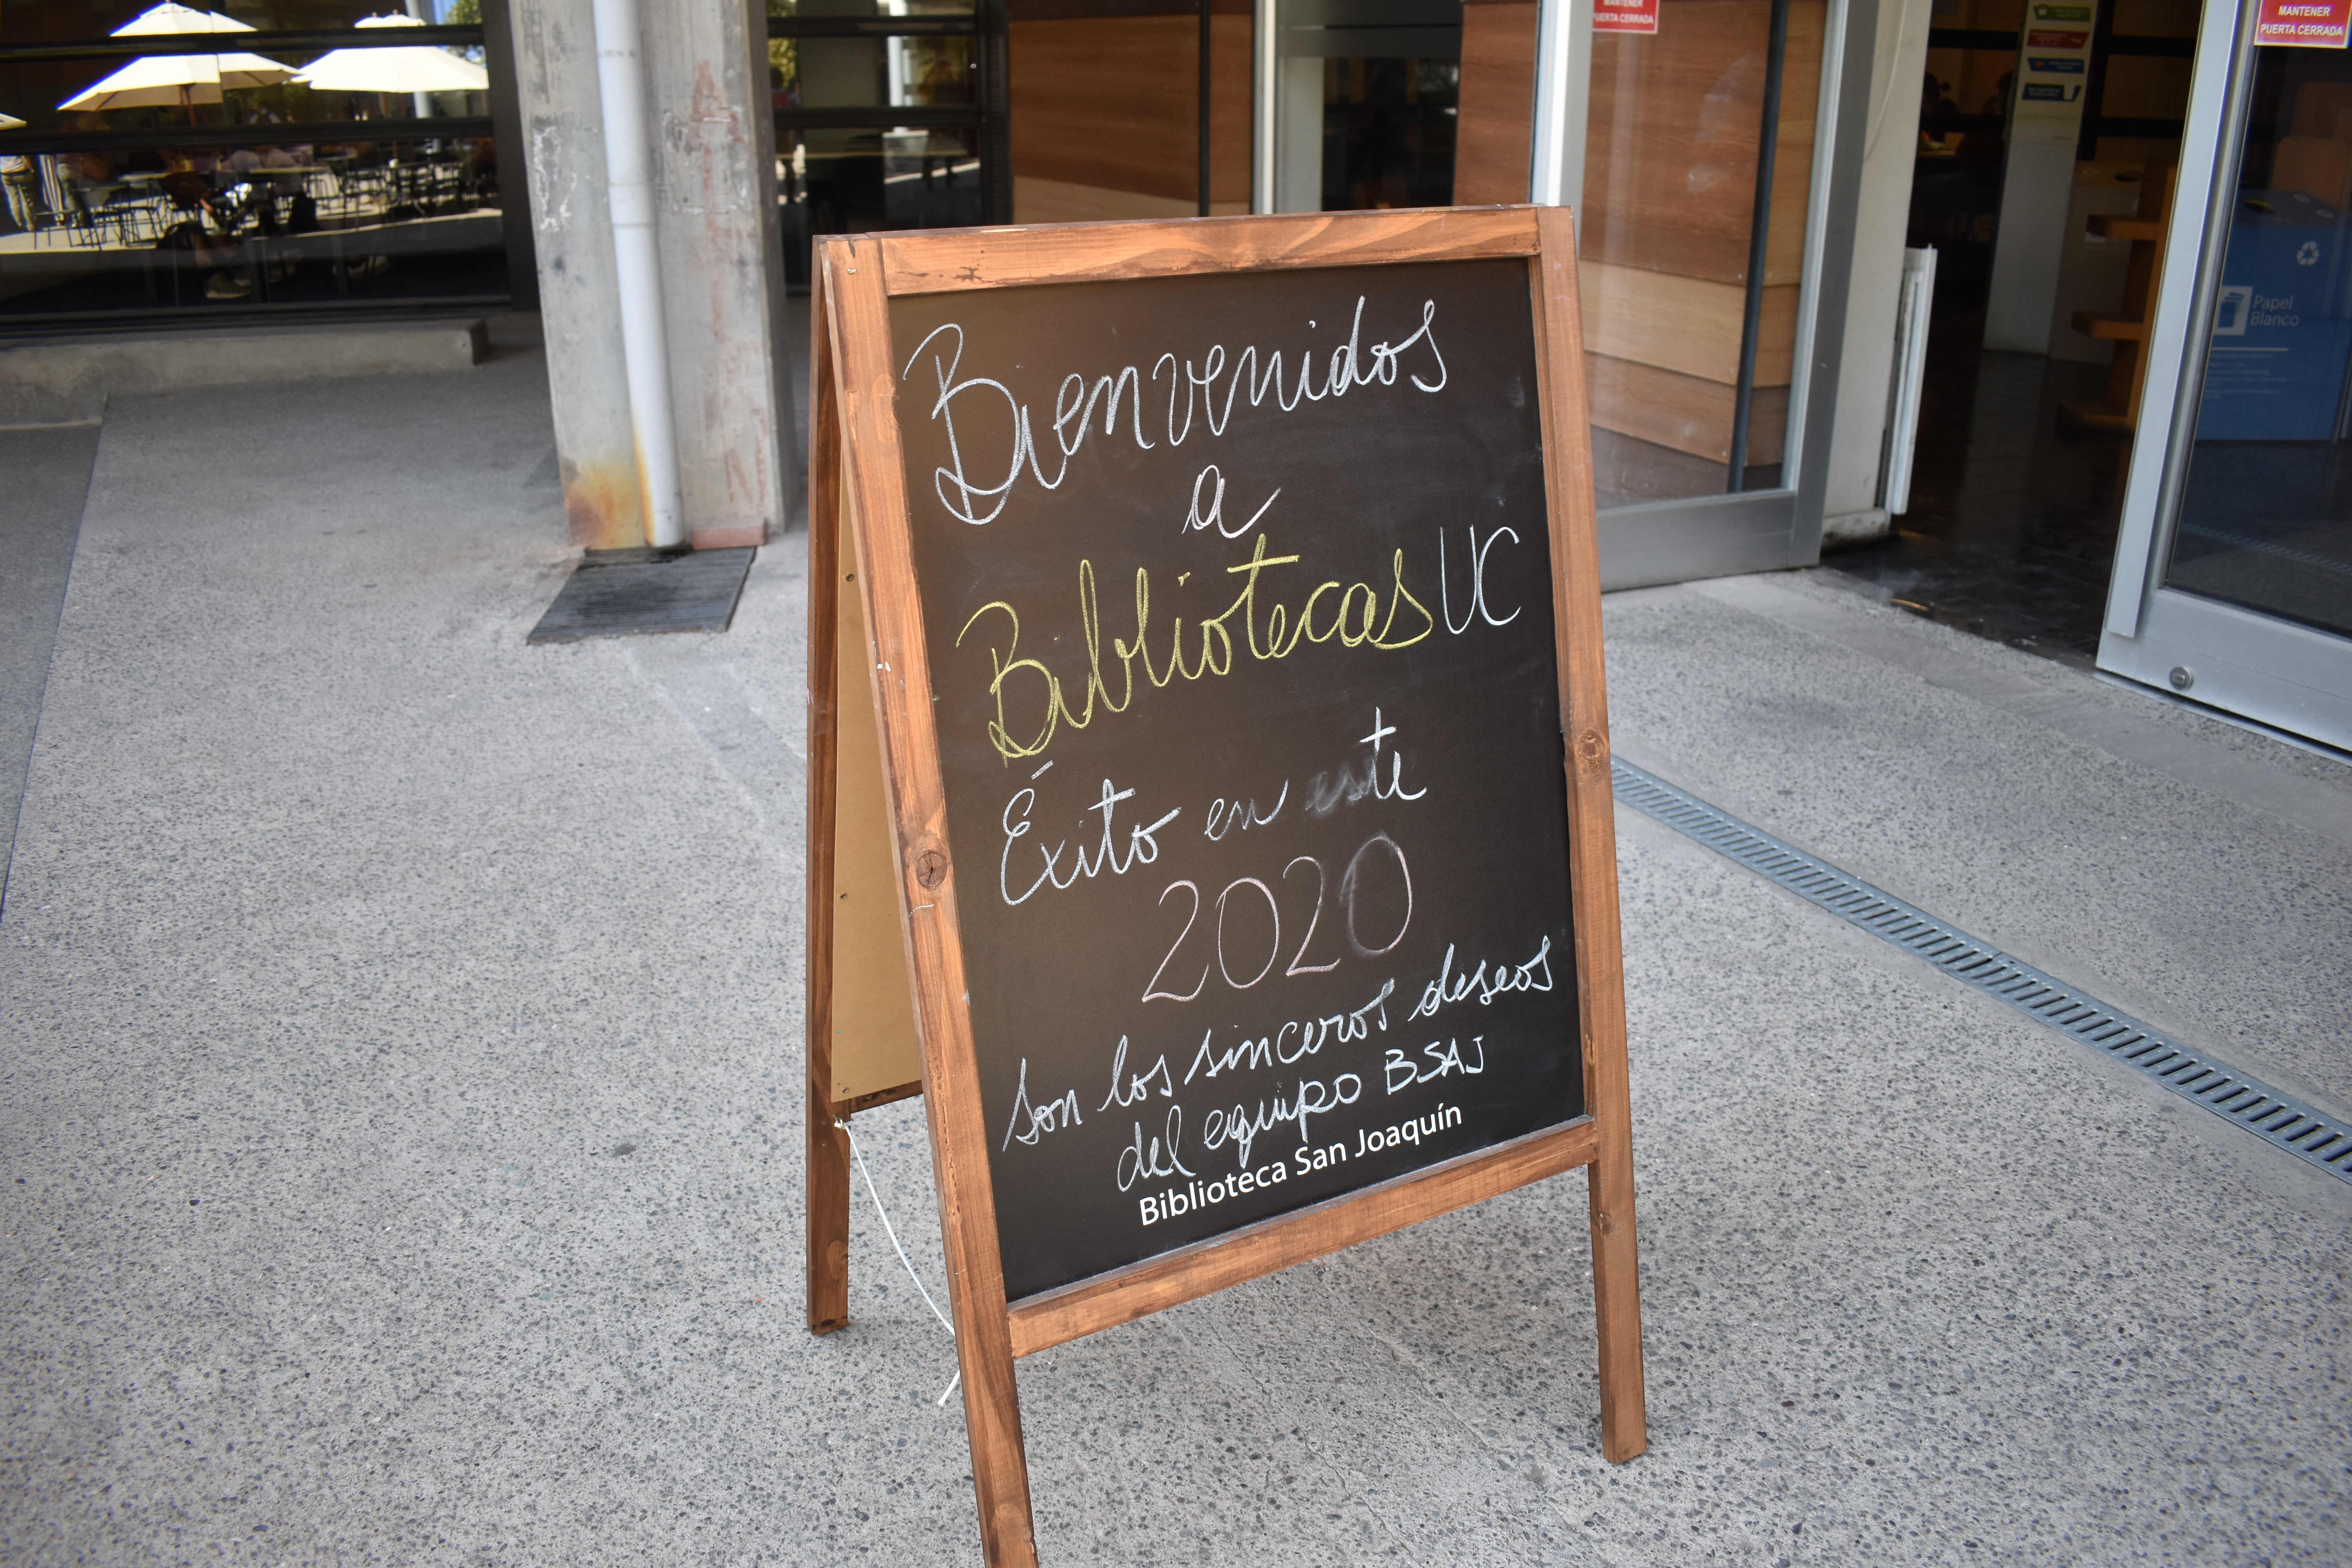 Bienvenidos
a
Bibliotecas UC
Éxito en este
2020
son los sinceros deseos
del equipo BSAJ
Biblioteca San Joaquín
MANTENER
PUERTA CERRADA
MANTENER
PUERTA CERRADA
Papel
Blanco